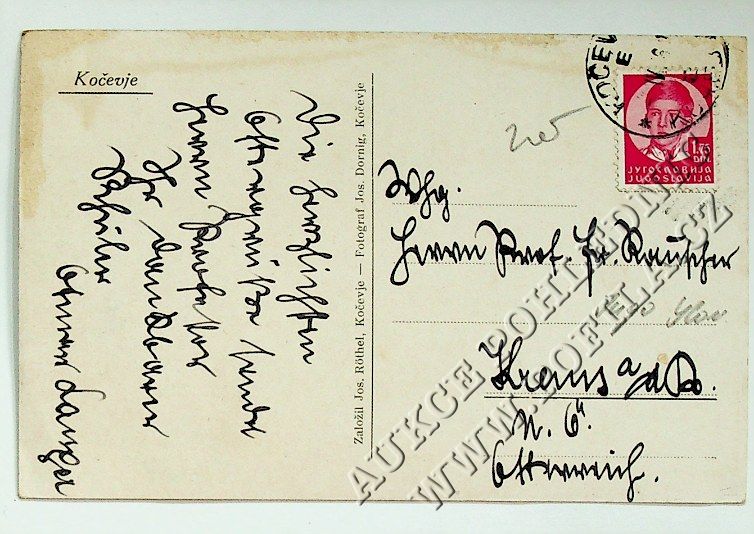 Kočevje
Die herzlichsten
Ostergrüße sendet
Herrn Professor
Ihr dankbarer
Schüler
Othmar Langer
Založil Jos. Röthel, Kočevje — Fotograf Jos. Dornig, Kočevje
KOČEV
1.75
DIN.
ЈУГОСЛАВИЈА
JUGOSLAVIJA
Whg.
Herrn Prof. Fr. Rauscher
Krems a/d D.
N. 6
Österreich.
AUKCE POHLEDNIC
WWW.POFILA.CZ